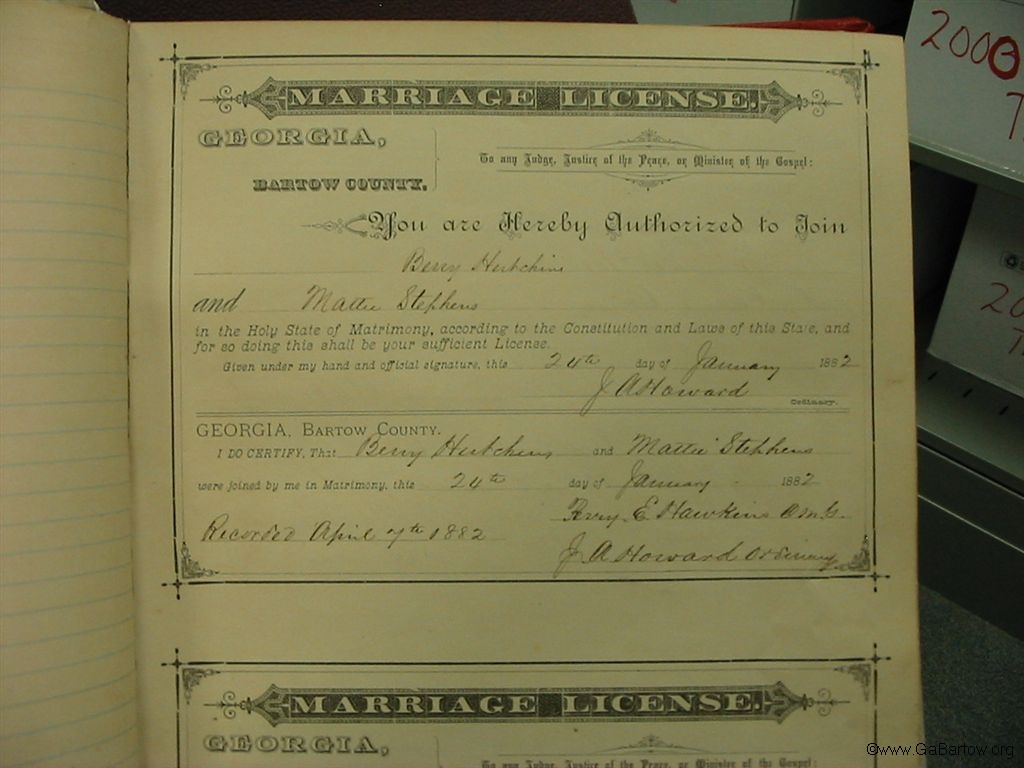 MARRIAGE LICENSE.
GEORGIA,
BARTOW COUNTY.
To any Judge, Justice of the Peace, or Minister of the Gospel:
You are Hereby Authorized to Join
Berry Hutchins
and Mattie Stephens
in the Holy State of Matrimony, according to the Constitution and Laws of this State, and
for so doing this shall be your sufficient License.
Given under my hand and official signature, this 24th day of January 1882
J A Howard
Ordinary.
GEORGIA, BARTOW COUNTY.
I DO CERTIFY, That Berry Hutchins and Mattie Stephens
were joined by me in Matrimony, this 24th day of January 1882
E Hawkins
Recorded April 7th 1882
J A Howard Ordinary
MARRIAGE LICENSE.
GEORGIA,
To any Judge, Justice of the Peace, or Minister of the Gospel:
2000
20
©www.GaBartow.org